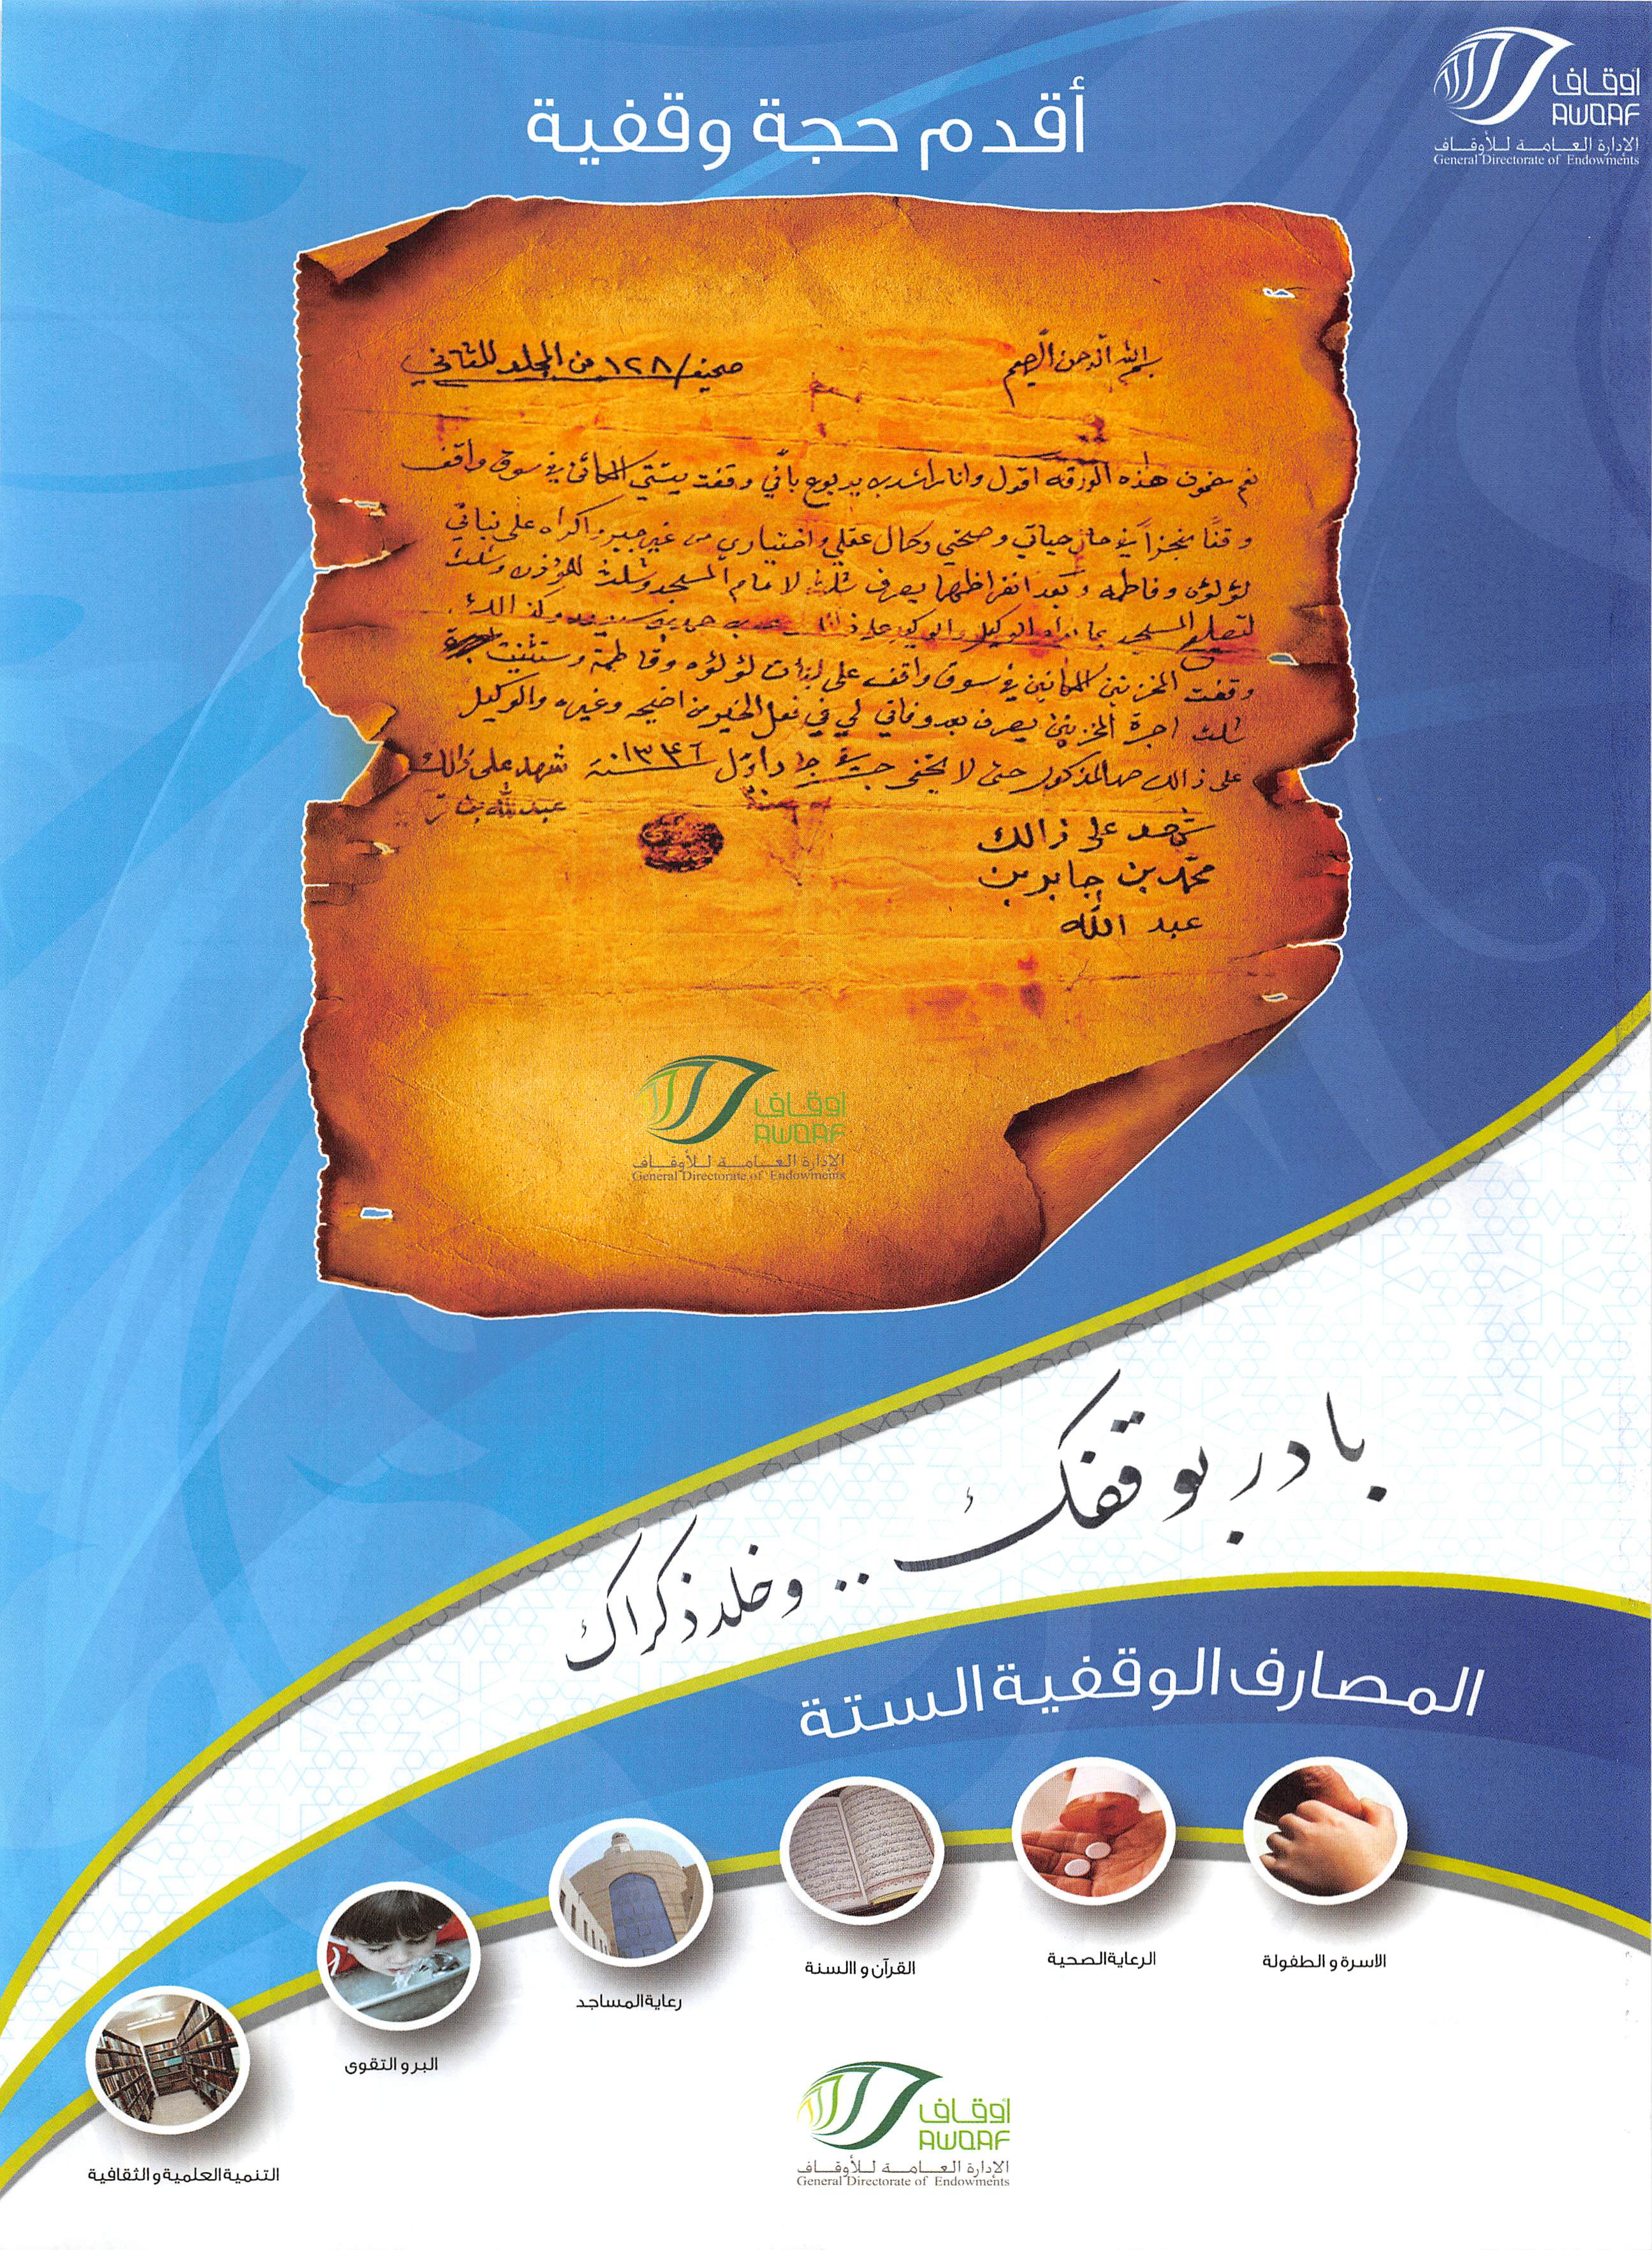 أوقاف
AWQAF
الإدارة العامة للأوقاف
General Directorate of Endowments
أقدم حجة وقفية
بسم الله الرحمن الرحيم
صحيفة/١٢٨ من المجلد الثاني
نعم مضمون هذه الورقة اقول وانا راشد بن يربوع بأني وقفت بيتي الكائن في سوق واقف
وقفًا منجزاً في حال حياتي وصحتي وكمال عقلي واختياري من غير جبر واكراه على بناتي
لؤلؤه وفاطمه وبعد انقراظهما يصرف ثلث لامام المسجد وثلث للمؤذن وثلث
المسجد بما الوكيل والوكيل على وكذالك
وقفت المخزنين الكائنين في سوق واقف على لؤلؤه وفاطمة وستثنيت
ثلث اجرة المخزنين يصرف بعد وفاتي لي في فعل الخير من اضحيه وغيره والوكيل
على ذالك المذكور حتى لا يخفى سنة ١٣٤٦ شهد على ذالك
عبد الله بن
شهد على ذالك
محمد بن جابر بن
عبد الله
أوقاف
AWQAF
الإدارة العامة للأوقاف
General Directorate of Endowments
بادر بوقفك .. وخلد ذكراك
المصارف الوقفية الستة
الاسرة و الطفولة
الرعاية الصحية
القرآن و االسنة
رعاية المساجد
البر و التقوى
التنمية العلمية و الثقافية
أوقاف
AWQAF
الإدارة العامة للأوقاف
General Directorate of Endowments